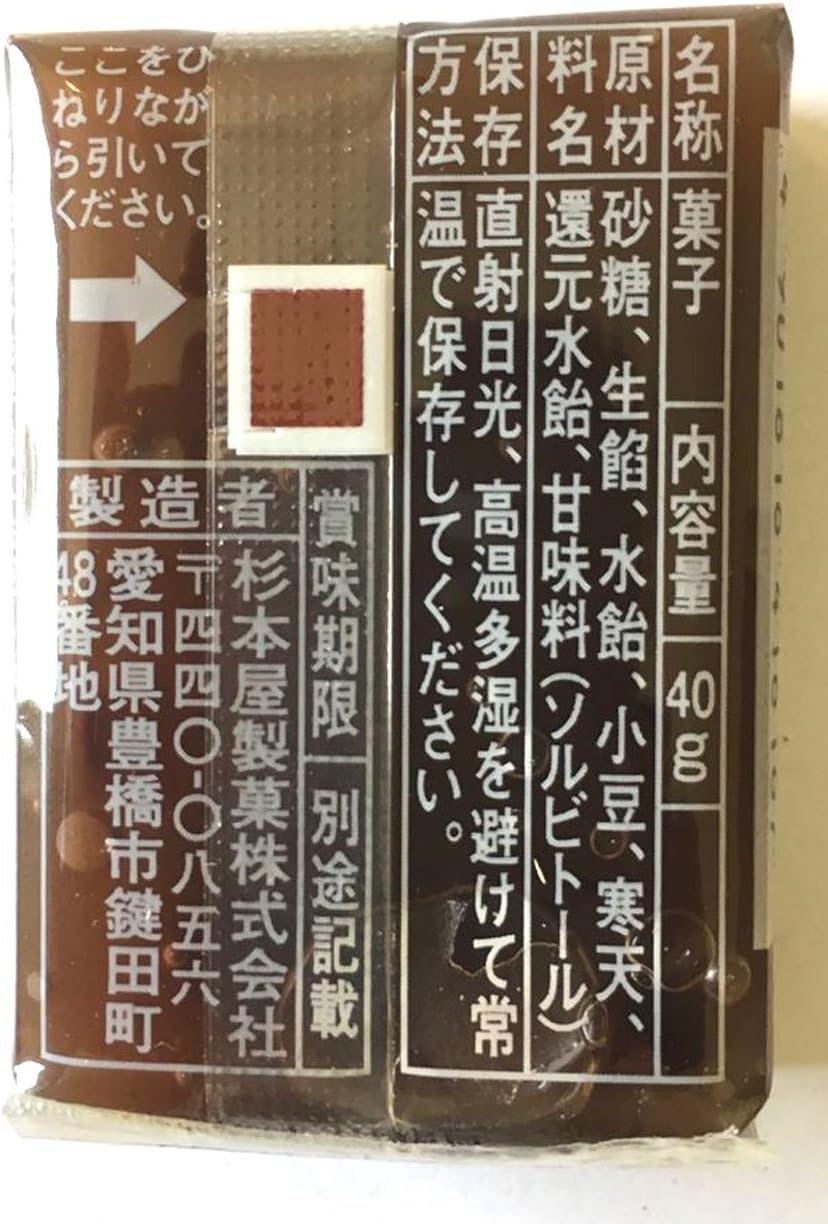 名称
菓子
内容量
40g
原材
料名
砂糖、生餡、水飴、小豆、寒天、
還元水飴、甘味料(ソルビトール)
保存
方法
直射日光、高温多湿を避けて常
温で保存してください。
賞味期限
別途記載
製造者
杉本屋製菓株式会社
〒四四〇-〇八五六
愛知県豊橋市鍵田町
48番地
ここをひ
ねりなが
ら引いて
ください。